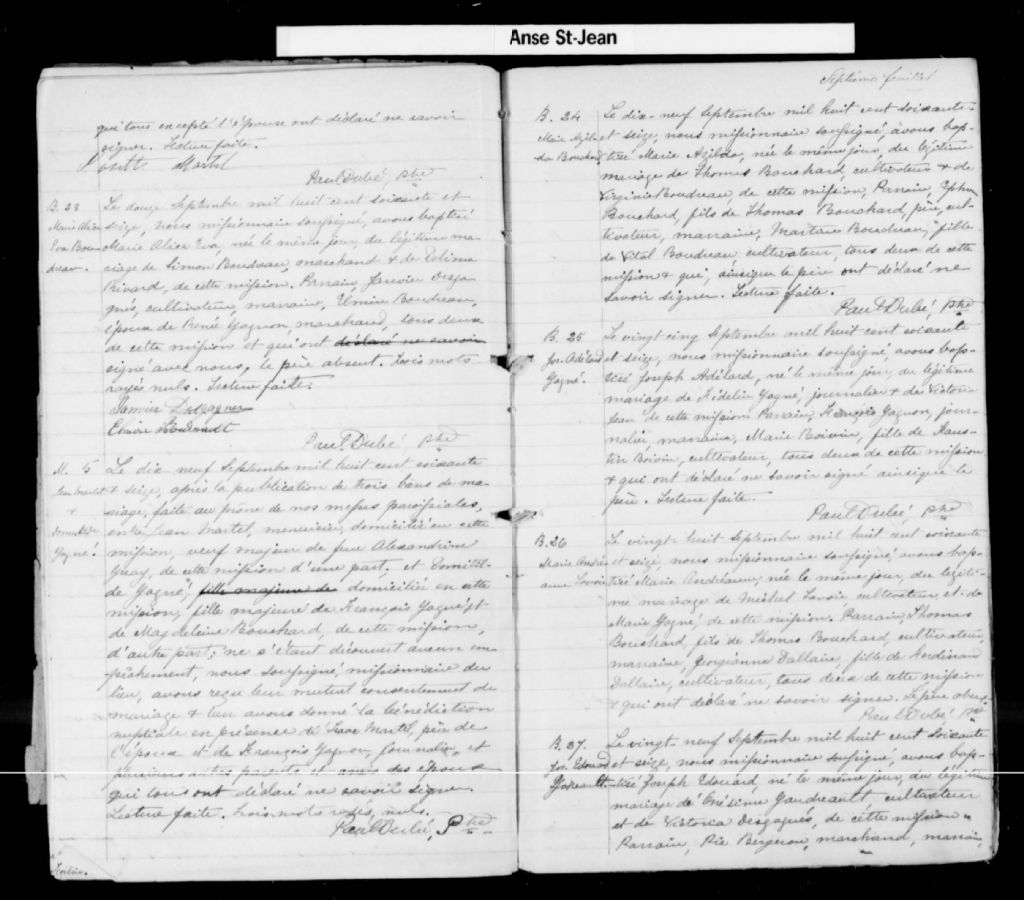 Anse St-Jean
qui tous excepté l'épouse ont déclaré ne savoir
signer. Lecture faite.
Martel
Paul Dubé, Ptre
B. 23
Marie Alice
Eva Bou-
dreau.
Le douze Septembre mil huit cent soixante et
seize, nous missionnaire soussigné, avons baptisé
Marie Alice Eva, née le même jour, du légitime ma-
riage de Simon Boudreau, marchand & de Zélima
Privard, de cette mission. Parrain, Janvier Desga-
gnés, cultivateur, marraine, Elmire Boudreau,
épouse de René Gagnon, marchand, tous deux
de cette mission et qui ont déclaré ne savoir
signé avec nous, le père absent. Trois mots
rayés nuls. Lecture faite.
Janvier
Elmire
Paul Dubé, Ptre
M. 5
Jean Martel
&
Gagné.
Le dix-neuf Septembre mil huit cent soixante
& seize, après la publication de trois bans de ma-
riage, faite au prône de nos messes paroissiales,
entre Jean Martel, menuisier, domicilié en cette
mission, veuf majeur de feue Alexandrine
Guay, de cette mission d'une part; et Domitil-
de Gagné, fille majeure de domiciliée en cette
mission, fille majeure de François Gagné et
de Magdeleine Bouchard, de cette mission,
d'autre part; ne s'étant découvert aucun em-
pêchement, nous soussigné, missionnaire du
lieu, avons reçu leur mutuel consentement de
mariage & leur avons donné la bénédiction
nuptiale en présence d'Isaac Martel, père de
l'époux et de François Gagnon, journalier, et
plusieurs autres parents et amis des époux
qui tous ont déclaré ne savoir signer.
Lecture faite. trois mots rayés, nuls.
Paul Dubé, Ptre
Septième feuillet
B. 24
Marie Azil-
da Bouchard
Le dix-neuf Septembre mil huit cent soixante-
et seize, nous missionnaire soussigné, avons bap-
tisé Marie Azilda, née le même jour, du légitime
mariage de Thomas Bouchard, cultivateur & de
Virginie Boudreau, de cette mission, Parrain,
Bouchard, fils de Thomas Bouchard, père, cul-
tivateur, marraine, Martine Boudreau, fille
de Vital Boudreau, cultivateur, tous deux de cette
mission & qui, ainsi que le père ont déclaré ne
savoir signer. Lecture faite.
Paul Dubé, Ptre
B. 25
Jos. Adélard
Gagné.
Le vingt cinq Septembre mil huit cent soixante
et seize, nous missionnaire soussigné, avons bap-
tisé Joseph Adélard, né le même jour, du légitime
mariage de Fidélin Gagné, journalier & de Victori-
Jean de cette mission Parrain, François Gagnon, jour-
nalier, marraine, Marie Boivin, fille de Faus-
tin Boivin, cultivateur, tous deux de cette mission
& qui ont déclaré ne savoir signé ainsi que le
père. Lecture faite.
Paul Dubé, Ptre
B. 26
Marie André-
anne Savoie
Le vingt-huit Septembre mil huit cent soixante
et seize, nous missionnaire soussigné, avons bap-
tisé Marie Andréanne, née le même jour, du légiti-
me mariage de Michel Savoie cultivateur et de
Marie Gagné, de cette mission. Parrain, Thomas
Bouchard, fils de Thomas Bouchard, cultivateur,
marraine, Georgianne Dallaire, fille de Ferdinand
Dallaire, cultivateur, tous deux de cette mission
& qui ont déclaré ne savoir signer. Le père absent
Paul Dubé, Ptre
B. 27.
Jos. Edouard
Gaudreault
Le vingt-neuf Septembre mil huit cent soixante
et seize, nous missionnaire soussigné, avons bap-
tisé Joseph Edouard, né le même jour, du légitime
mariage de Onésime Gaudreault, cultivateur
et de Victoria Desgagnés, de cette mission
Parrain, Pie Bergeron, marchand, marraine,